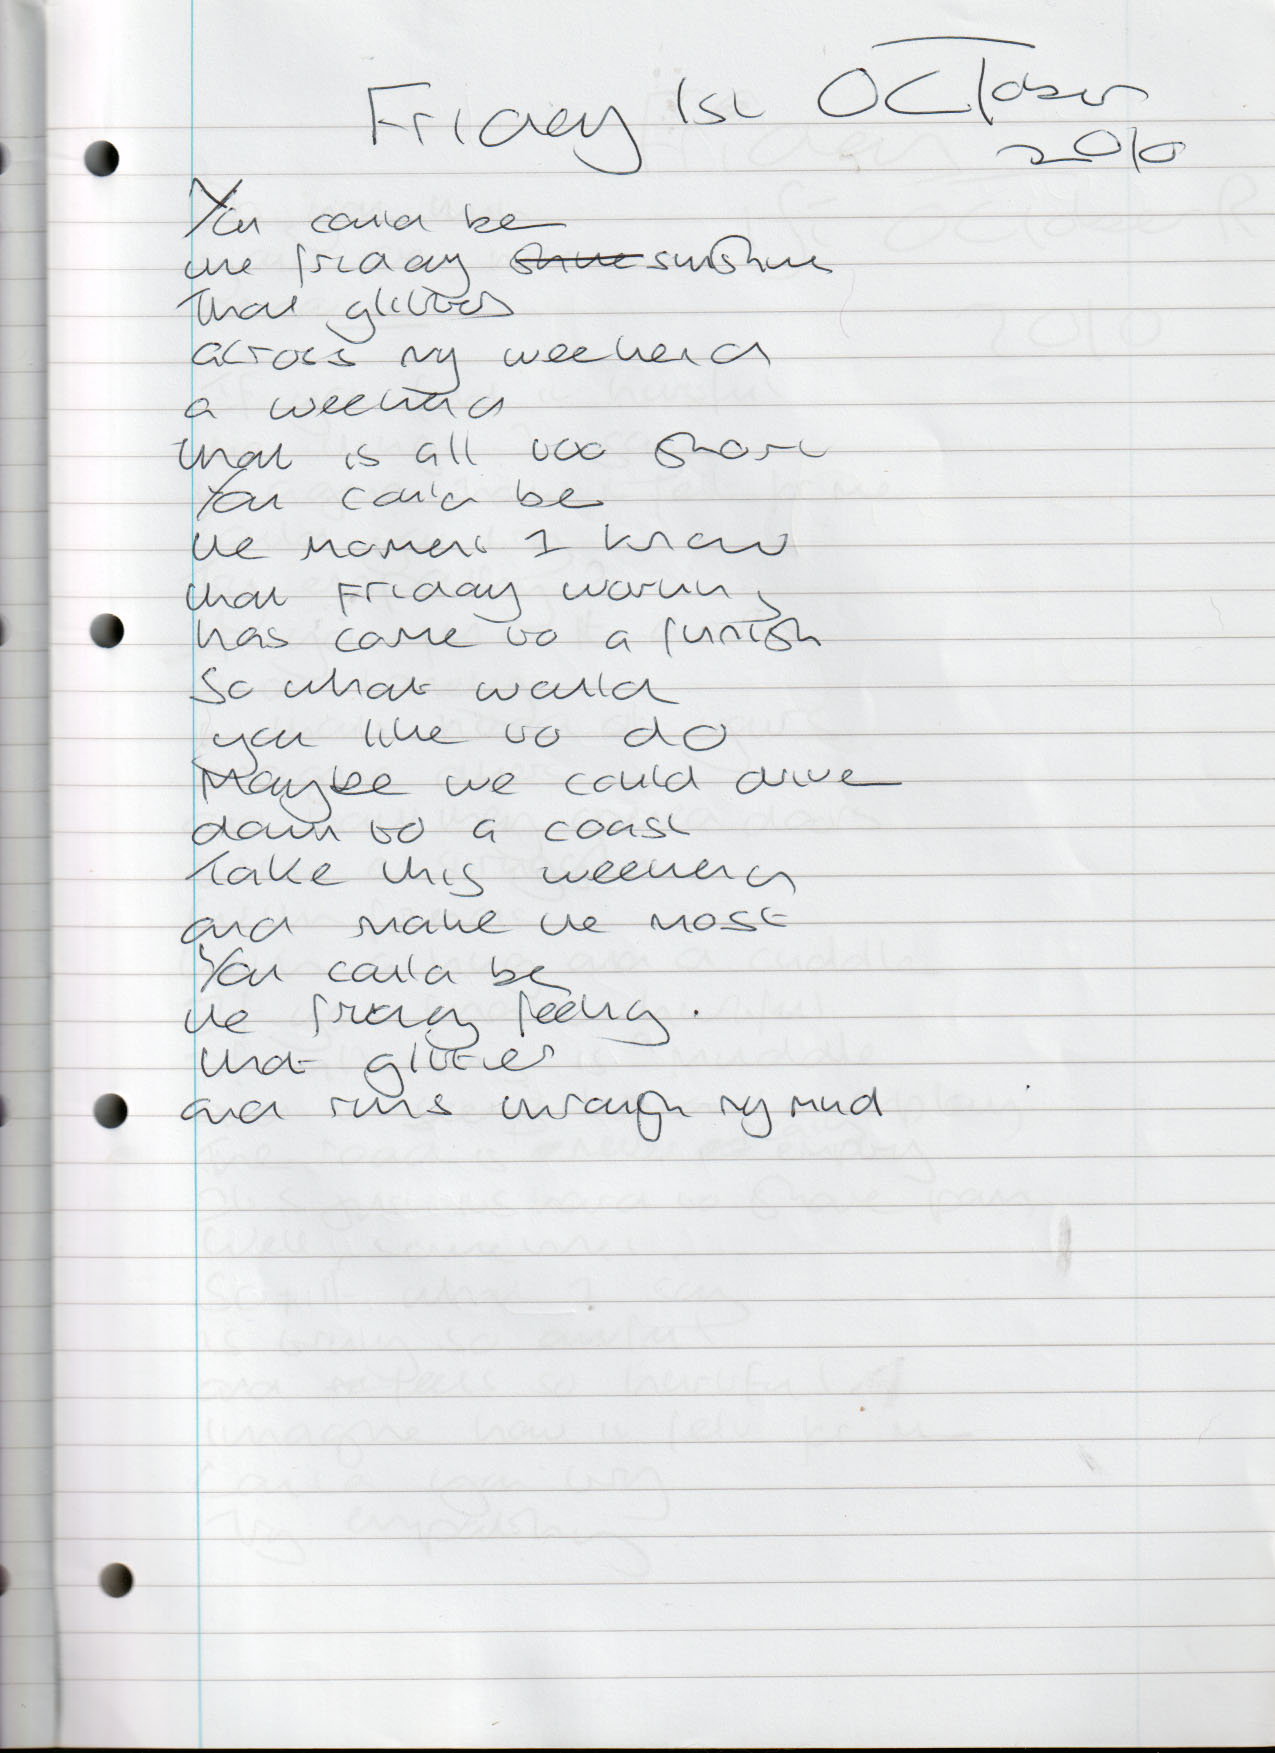 Friday 1st October
2010
You could be
the friday shine sunshine
that glitters
across my weekend
a weekend
that is all too short
You could be
the moment I know
that Friday working
has come to a finish
So what would
you like to do
Maybe we could drive
down to a coast
Take this weekend
and make the most
You could be
the friday feeling.
that glitter
and runs through my mind